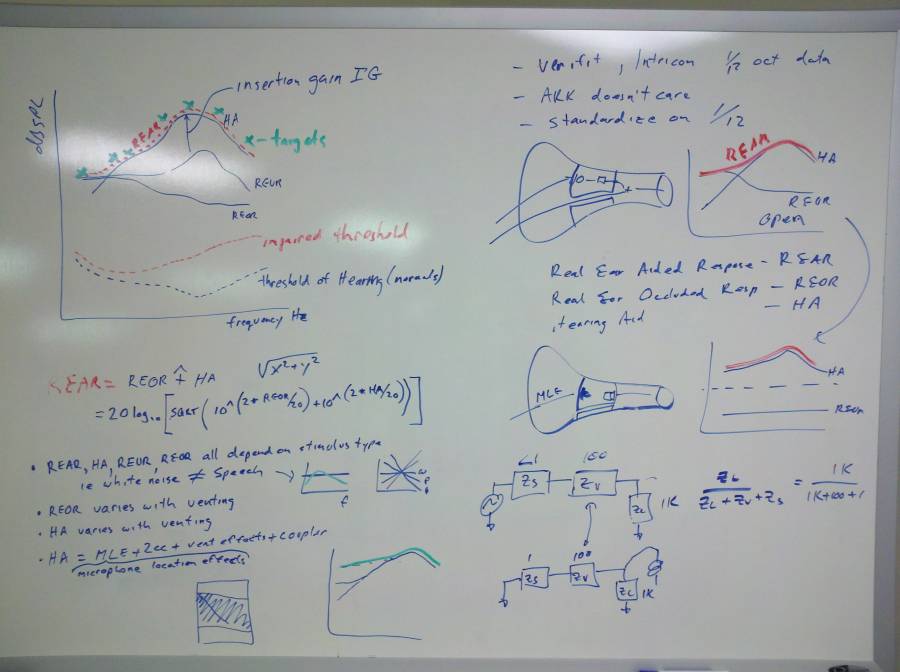 insertion gain IG
dBSPL
REAR
HA
x-targets
REUR
REOR
impaired threshold
threshold of Hearing (normals)
frequency Hz
REAR = REOR + HA
√x²+y²
= 20 log₁₀ [SQRT (10^(2*REOR/20) + 10^(2*HA/20))]
• REAR, HA, REUR, REOR all depend on stimulus type
ie white noise ≠ speech
f
• REOR varies with venting
• HA varies with venting
• HA = MLE + 2cc + vent effects + coupler
microphone location effects
- Verifit, Intricon 1/12 oct data
- ARK doesn't care
- Standardize on 1/12
REAR
HA
REOR
open
Real Ear Aided Respose - REAR
Real Ear Occluded Resp - REOR
Hearing Aid - HA
MLE
HA
REOR
<1
100
Zs
Zv
ZL
1K
ZL / ZL + Zv + Zs = 1K / 1K+100+1
1
100
Zs
Zv
ZL
1K